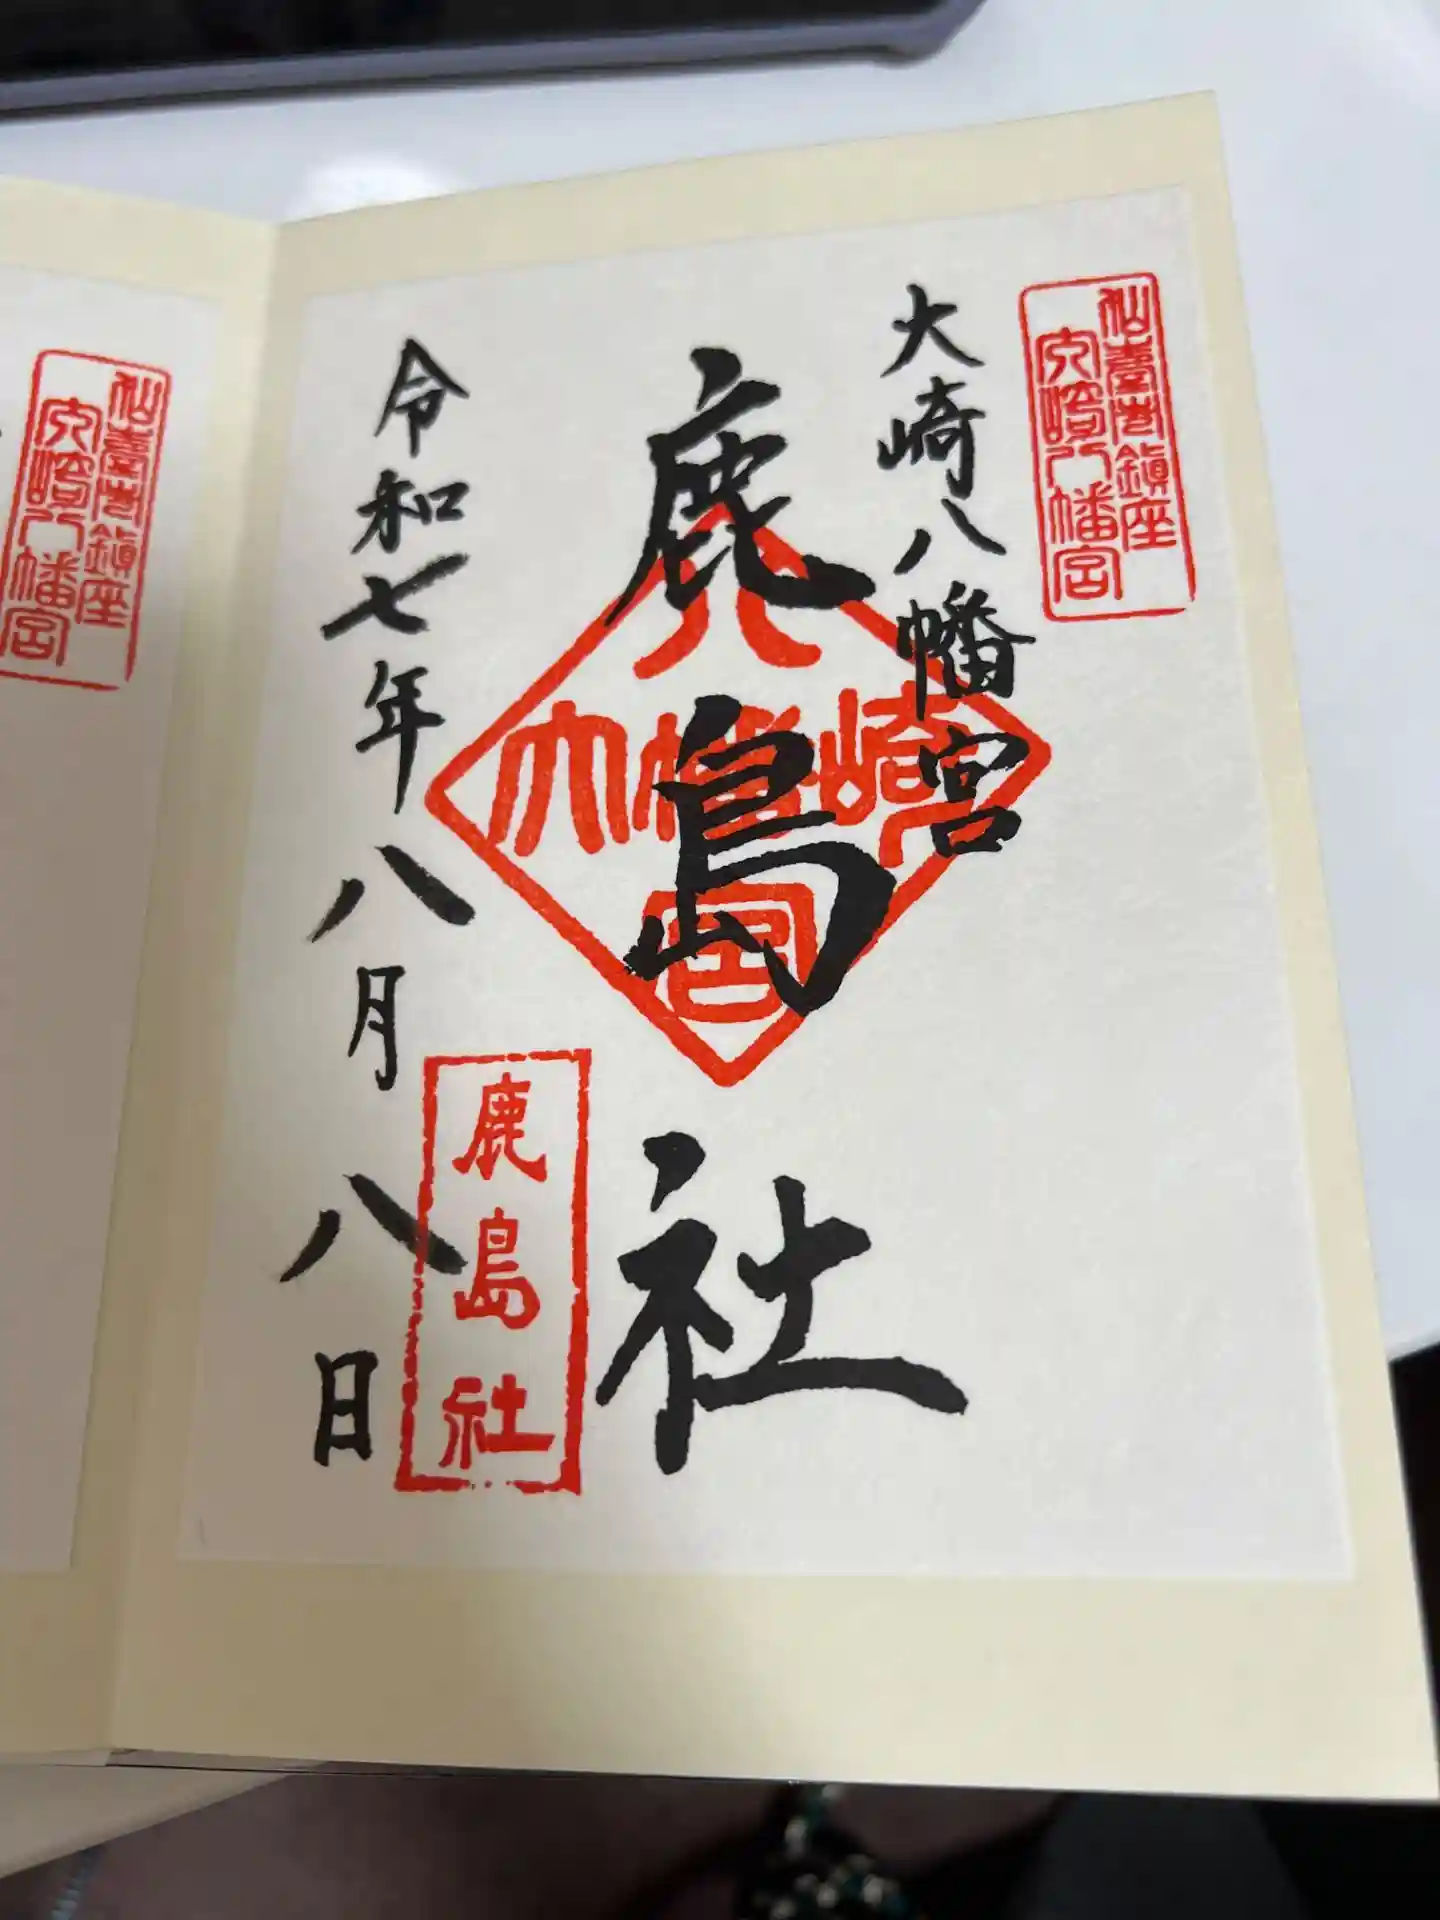 仙臺巷鎮座
大崎八幡宮
大崎八幡宮
鹿島社
八
大幡崎
宮
鹿島社
令和七年八月八日
仙臺巷鎮座
大崎八幡宮